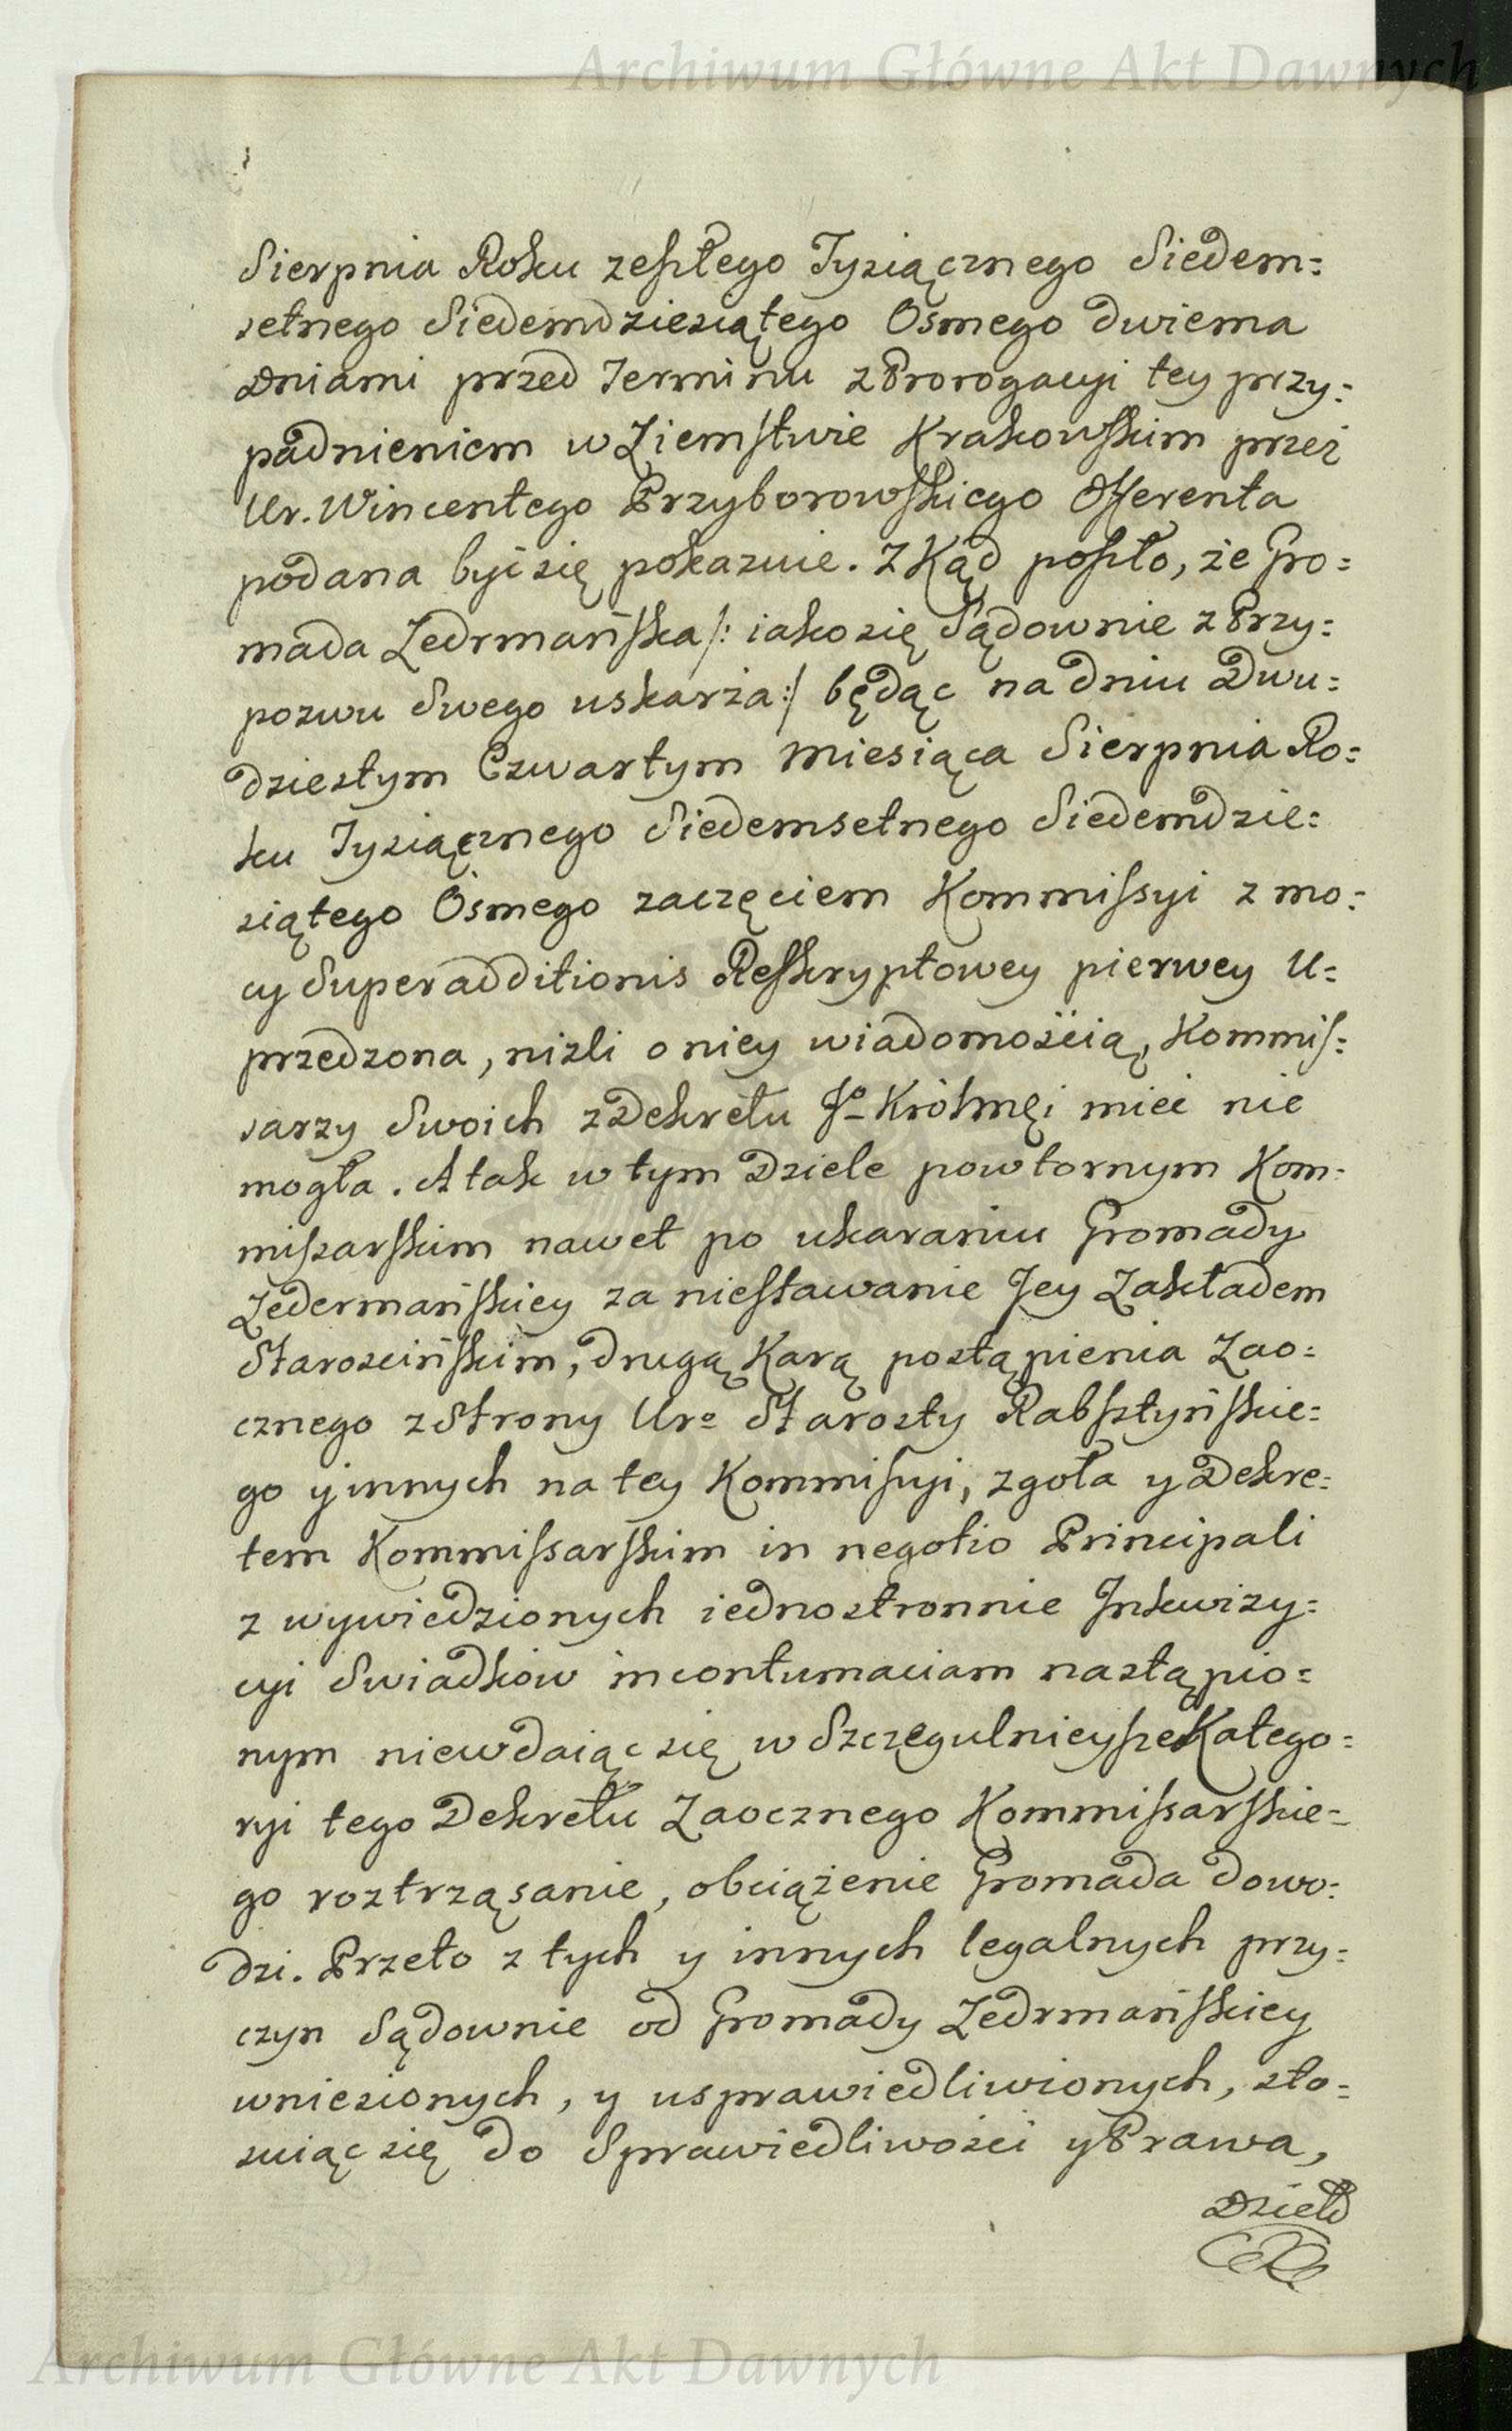 Archiwum Główne Akt Dawnych
Sierpnia Roku zeszłego Tysiącznego Siedem=
setnego Siedemdziesiątego Osmego dwiema
Dniami przed Terminu z Prorogacyi tey przy=
padnieniem w Ziemstwie Krakowskim przez
Ur. Wincentego Przyborowskiego Offerenta
podana być się pokazuie. Z Kąd poszło, że Gro=
mada Zedrmańska /: iako się Sądownie z Przy=
pozwu Swego uskarża :/ będąc na dniu Dwu=
dziestym Czwartym Miesiąca Sierpnia Ro=
ku Tysiącznego Siedemsetnego Siedemdzie=
siątego Osmego zaczęciem Kommissyi z mo=
cy Superadditionis Reskryptowey pierwey U=
przedzona, niżli o niey wiadomością, Kommis=
sarzy Swoich z Dekretu Jo Królmći mieć nie
mogła. A tak w tym Dziele powtornym Kom=
missarskim nawet po ukaraniu Gromady
Zedermańskiey za niestawanie Jey Zakładem
Staroscińskim, drugą Karą postąpienia Zao=
cznego z Strony Uro Starosty Rabsztyńskie=
go y innych na tey Kommissyi, zgoła y Dekre=
tem Kommissarskim in negotio Principali
z wywiedzionych iednostronnie Inkwizy=
cyi Swiadków in contumaciam nastąpio=
nym niewdaiąc się w Szczegulnieysze Katego=
ryi tego Dekretu Zaocznego Kommissarskie=
go roztrząsanie, obciążenie Gromada dowo=
dzi. Przeto z tych y innych legalnych przy=
czyn Sądownie od Gromady Zedrmańskiey
wniesionych, y usprawiedliwionych, sto=
suiąc się do Sprawiedliwości y Prawa,
Dzieło
Archiwum Główne Akt Dawnych